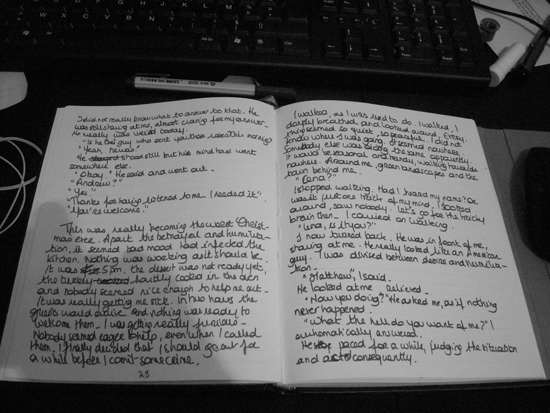 I did not really know what to answer to that. He
was still staring at me, almost craving for my answer.
He really was weird today.
"Is he that guy who sent you those weeks
"Yeah.
He stood still but his mind had went
somewhere else.
"Okay." He said and went out.
"Andrew?"
"Yes."
"Thanks for having listened to me. I needed it."
"You're welcome."
This was really becoming the worst Christ-
mas ever. Apart the betrayal and humilia-
tion, it seemed bad mood had infected the
kitchen. Nothing was working as it should be.
It was 5 pm, the desert was not ready yet,
the turkey hardly cooked in the oven
and nobody seemed nice enough to help me out.
It was really getting me sick. In two hours the
guests would arrive and nothing was ready to
welcome them. I was getting really
Nobody seemed eager to help, even when I called
them. I finally decided that I should go out for
a while before I commit some crime.
28
I walked, as I was used to do. I walked, I
deeply breathed and looked around. Every
thing seemed so quiet, so peaceful. I did not
know where I was going, it seemed nowhere.
Somebody else was doing the same apparently.
It would be seasonal and trendy, walking towards
nowhere. Around me, green landscapes and the
town behind me.
"Lena?"
I stopped walking. Had I heard my name? Or
was it just one trick of my mind. I looked
around, saw nobody. Let's go for the tricky
brain then. I carried on walking.
"Lena, is it you?"
I now turned back. He was in front of me,
staring at me. He really looked like an American
guy. I was divided between desire and humilia-
tion.
"Matthew", I said.
He looked at me relieved.
"How you doing?" He asked me, as if nothing
never happened.
"What the hell do you want of me?" I
automatically answered.
He paced for a while, judging the situation
and acts consequently.